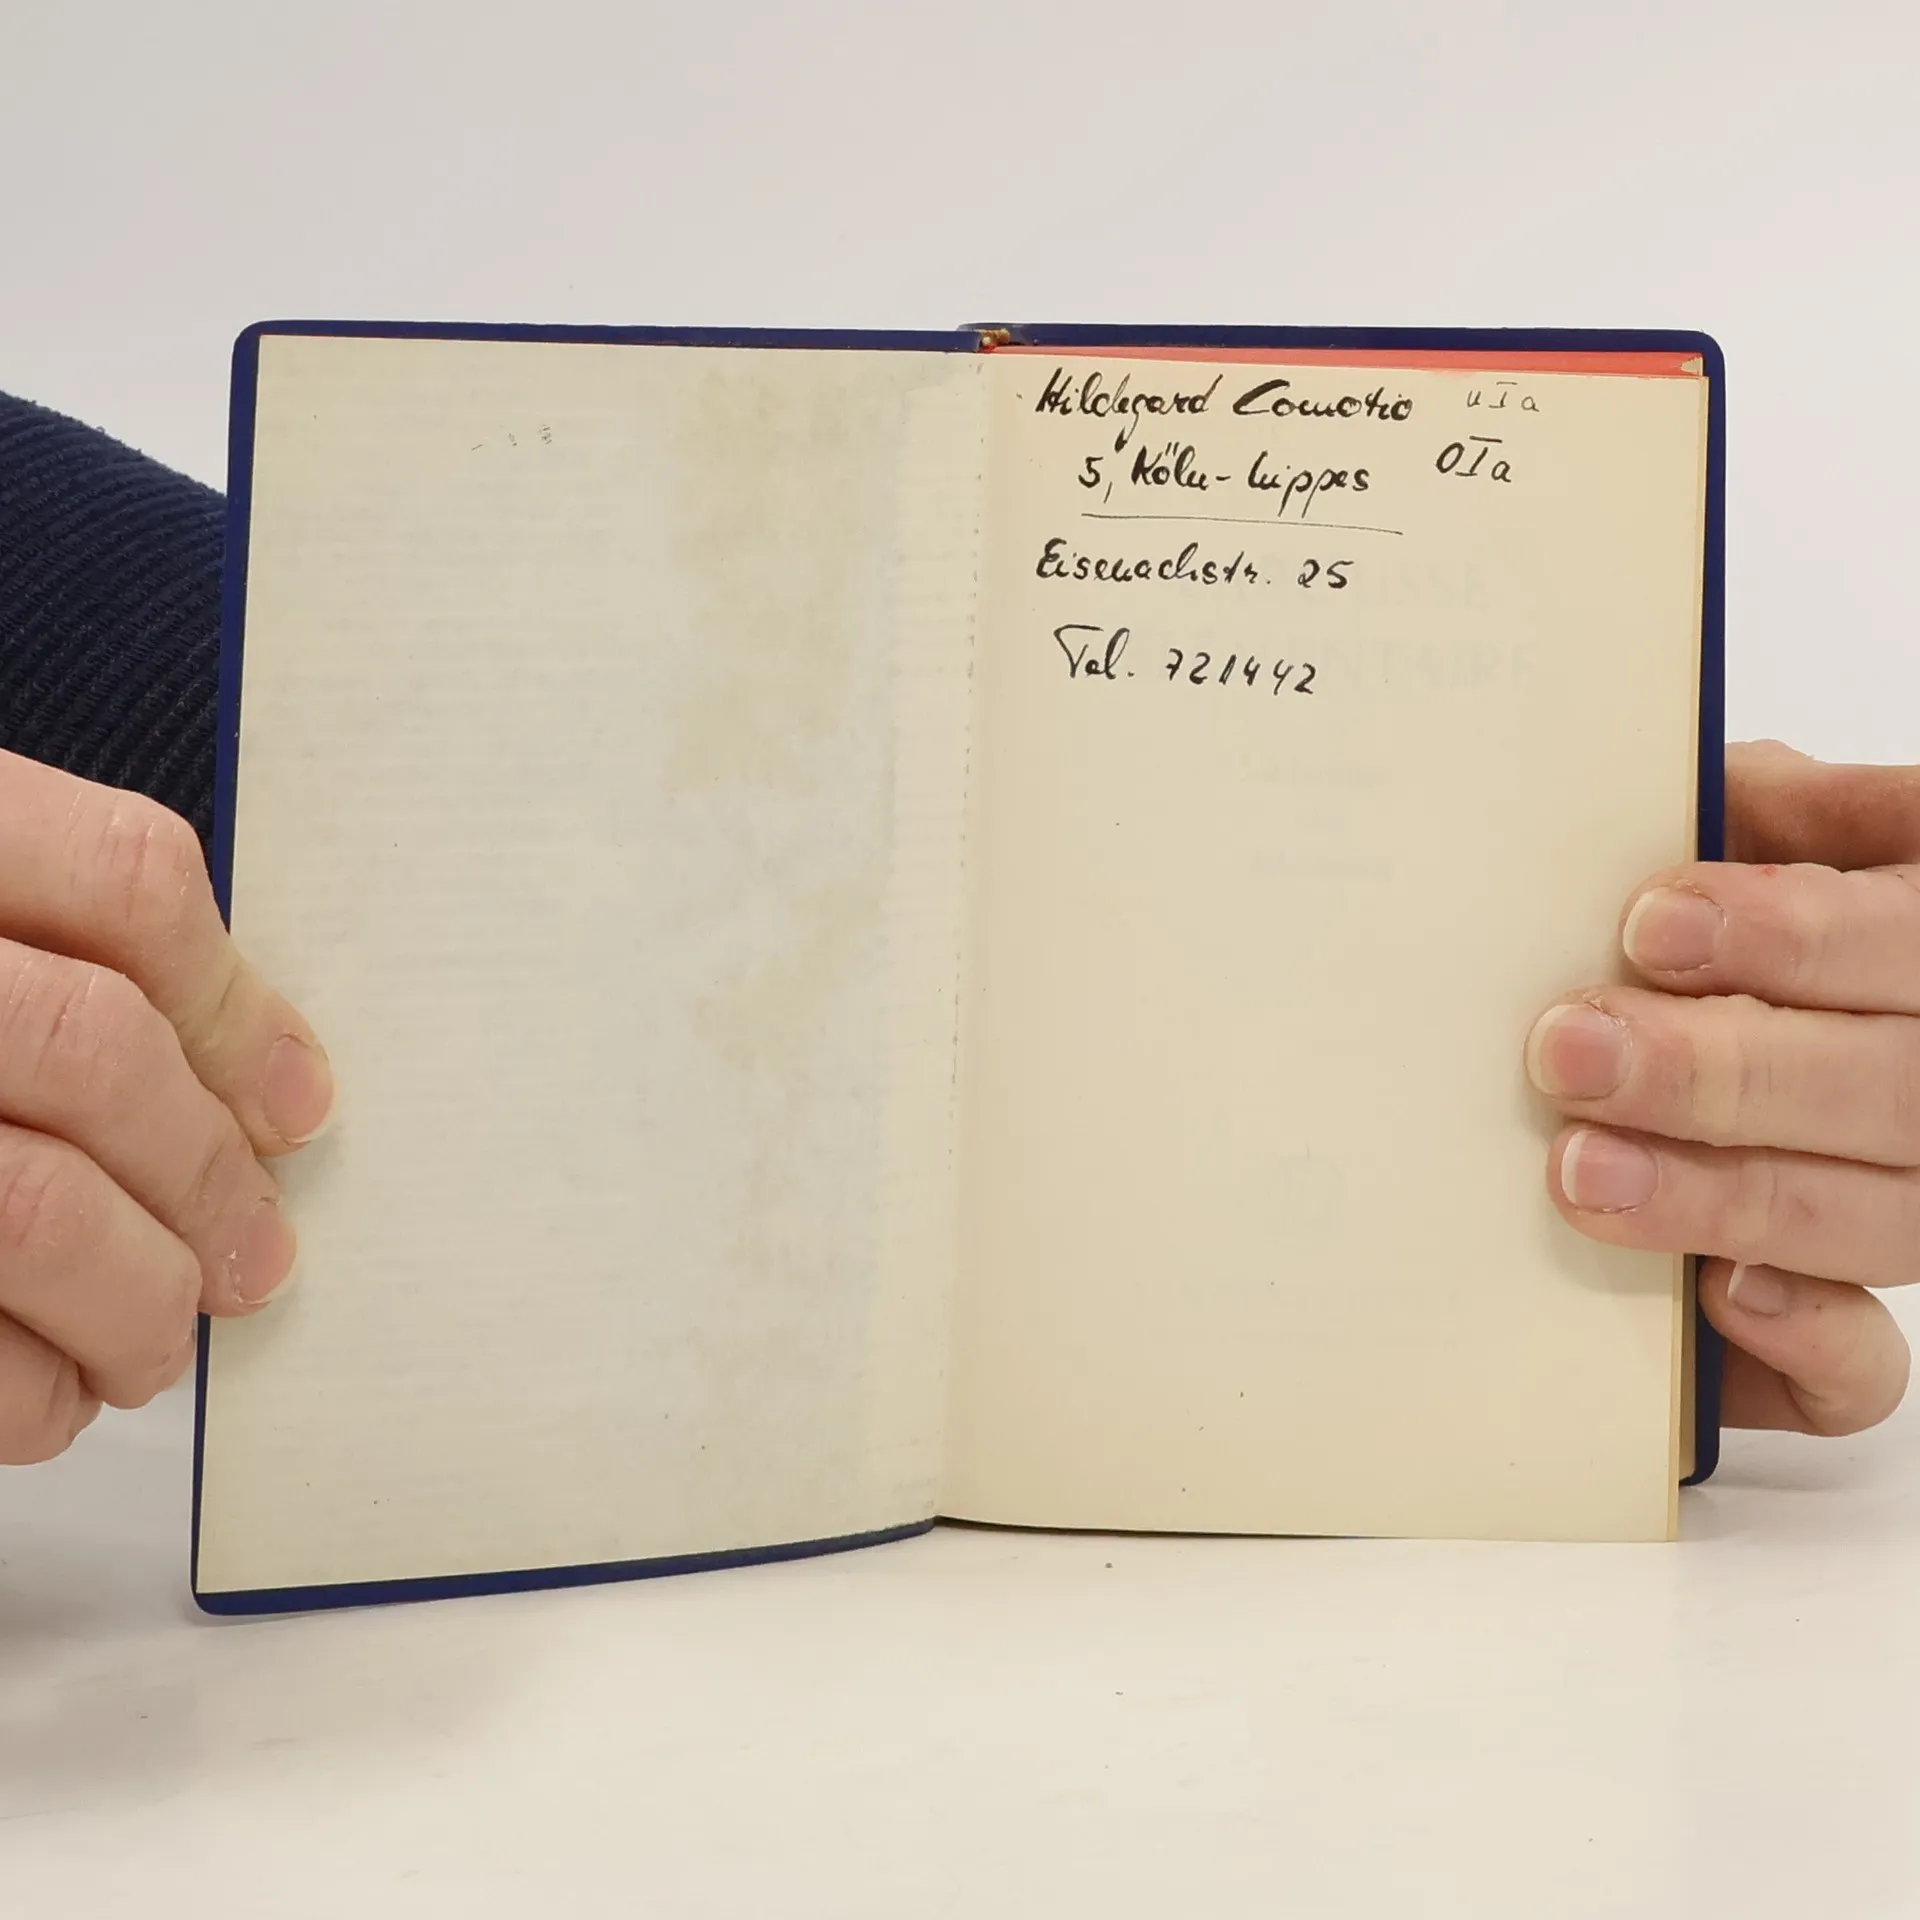 Hildegard Comotio uIa
5, Köln-Nippes OIa
Eisenachstr. 25
Tel. 721442